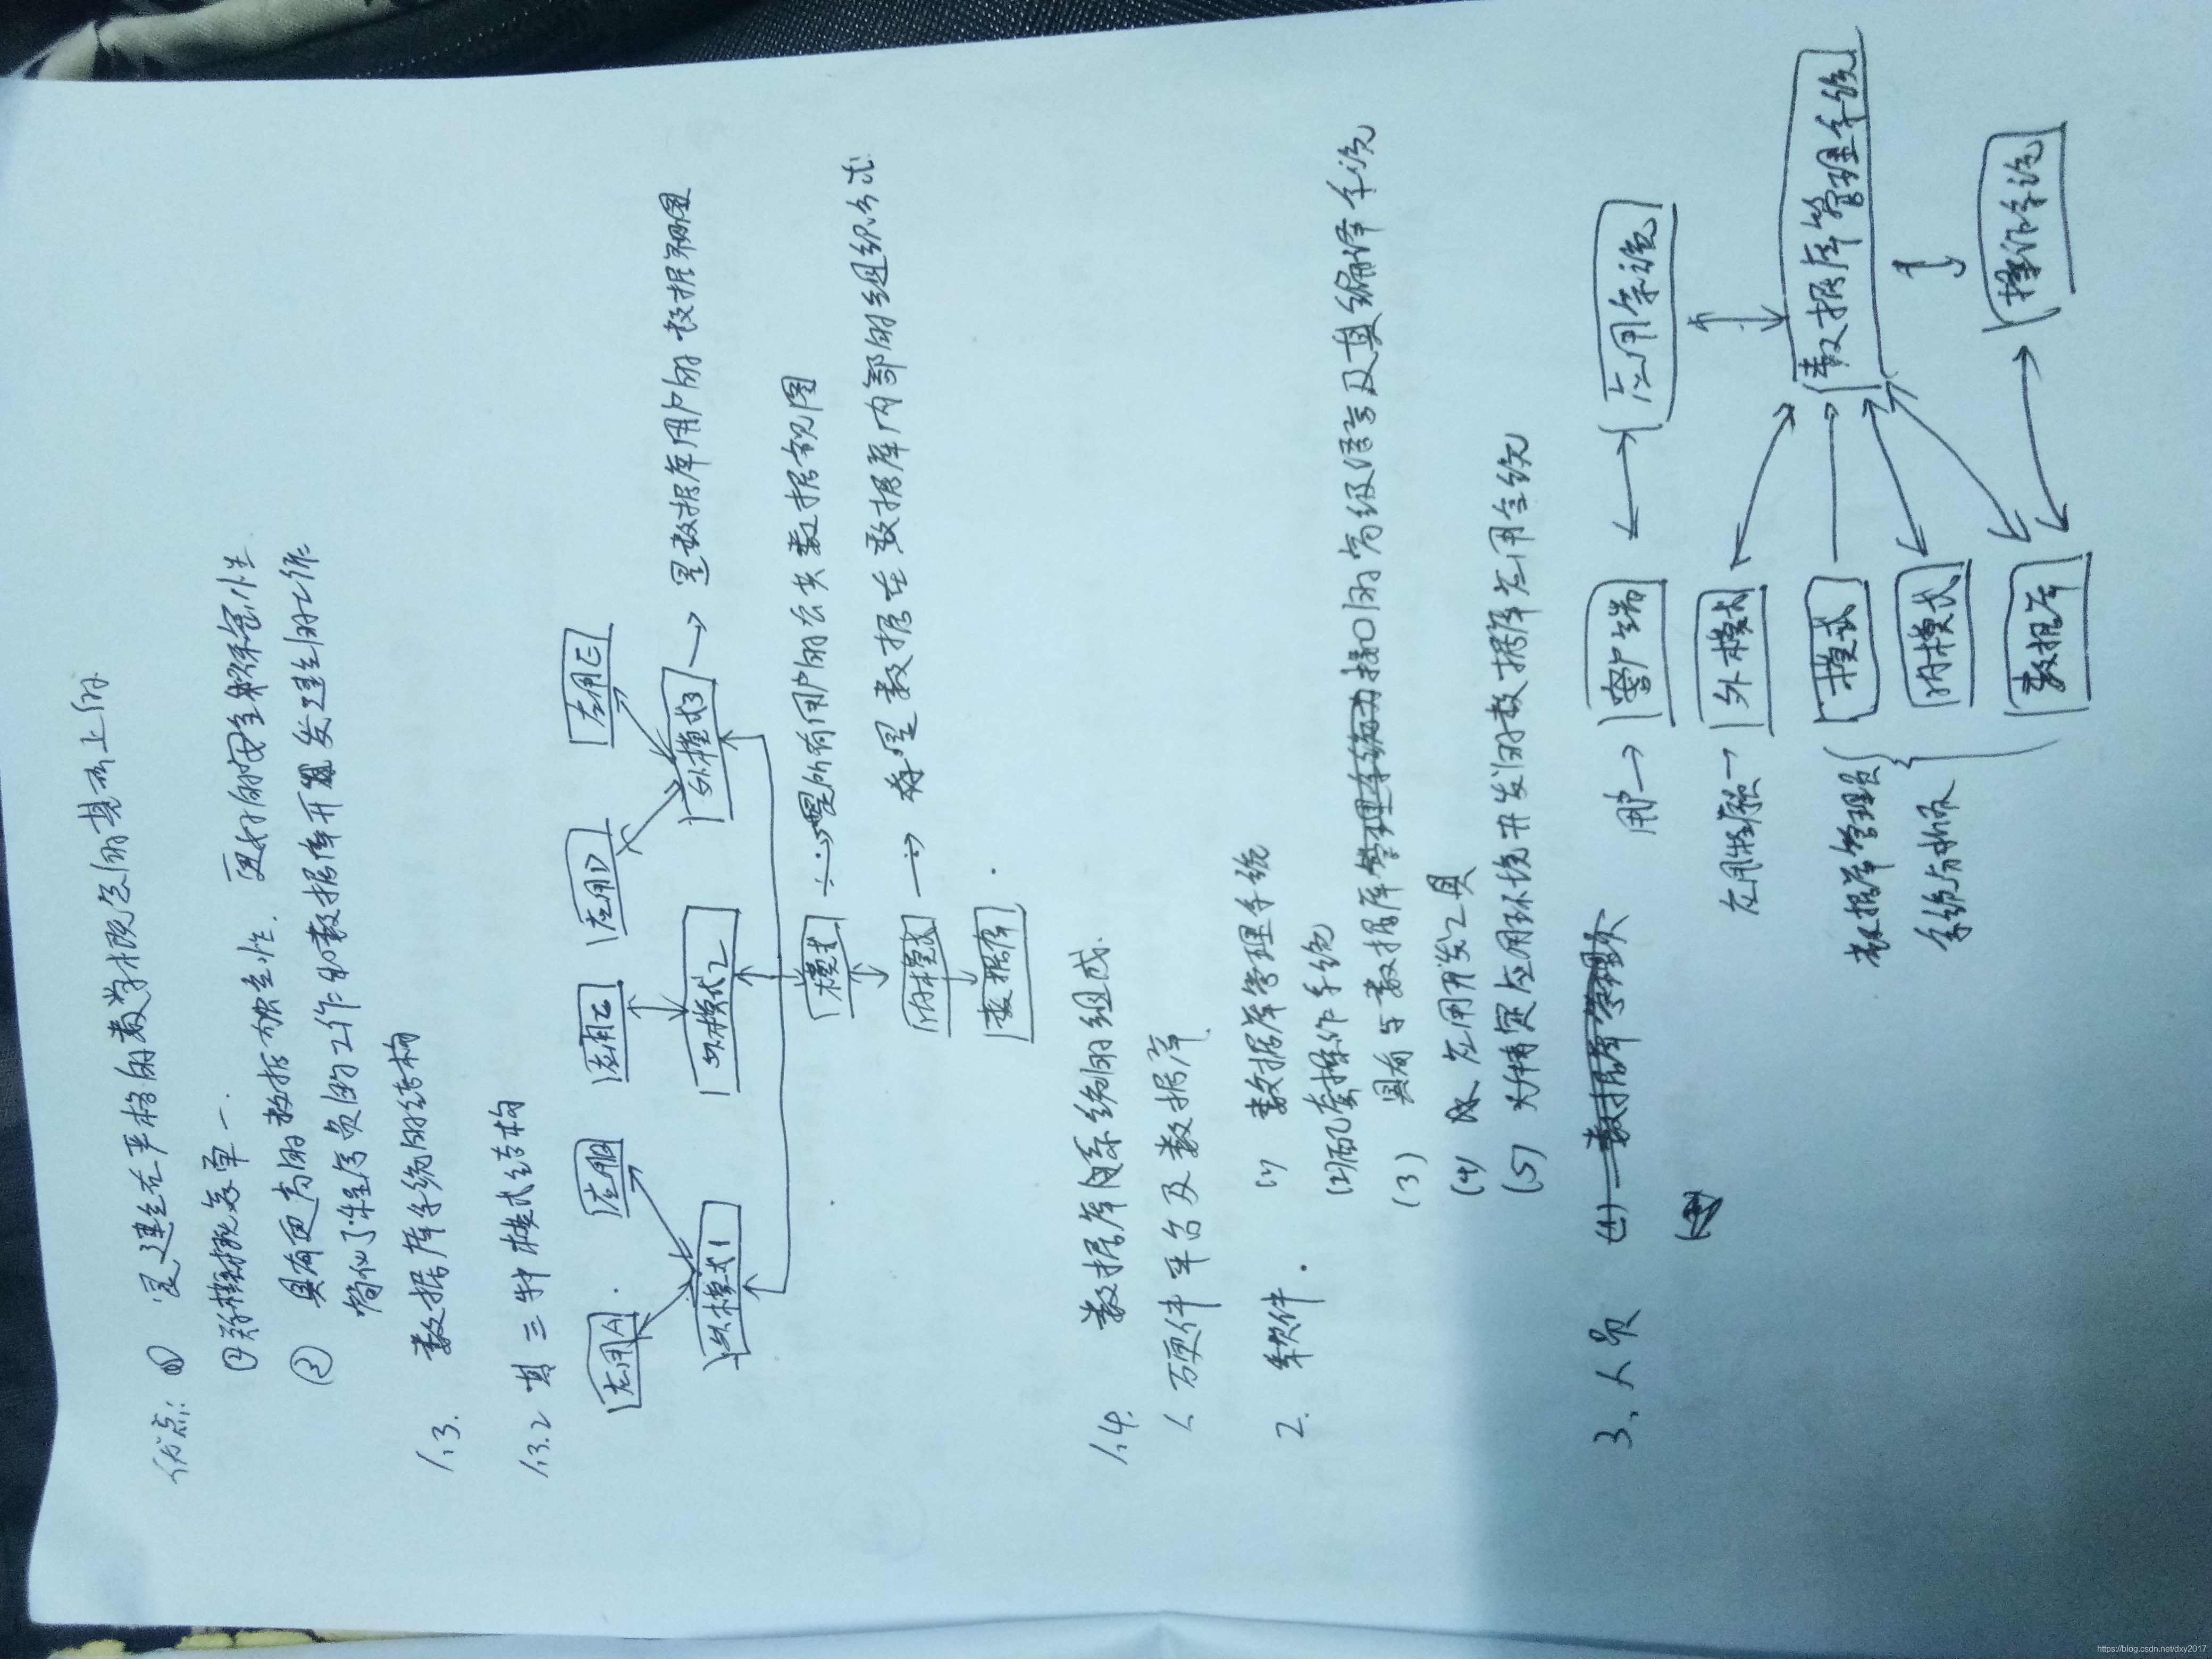 优点: ① 是建立在严格的数学概念的基础上的
② 概念单一.
③ 具有更高的数据独立性. 更好的安全保密性
简化了程序员的工作和数据库开发建立的工作
1.3. 数据库系统的结构
1.3.2 其三种模式结构
应用A 应用B 应用C 应用D 应用E
外模式1 外模式2 外模式3 → 是数据库用户的数据视图
模式 → 是所有用户的公共数据视图
内模式 → 是数据在数据库内部的组织方式
数据库
1.4. 数据库系统的组成.
1. 硬件平台及数据库
2. 软件. (1) 数据库管理系统
(2) 配套操作系统
(3) 具有与数据库接口的高级语言及其编译系统
(4) 应用开发工具
(5) 为特定应用环境开发的数据库应用系统
3、人员
用户 → 客户端 应用系统
应用程序 → 外模式
数据库管理员 模式 数据库管理系统
系统分析员 内模式
数据库 操作系统
https://blog.csdn.net/dxy2017